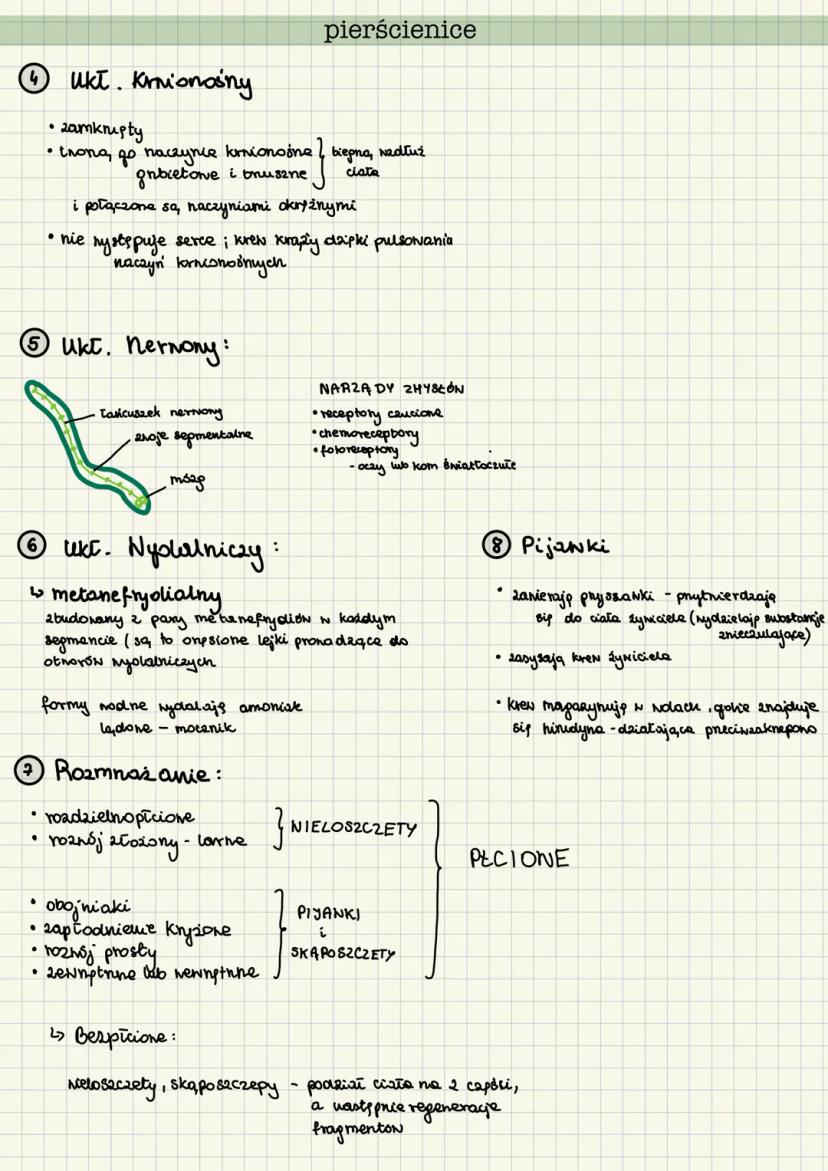 pierścienice
4 Ukł. Krwionośny
• zamknięty
• tworzą go naczynie krwionośne } biegną wzdłuż
grzbietowe i brzuszne ciała
i połączone są naczyniami okrężnymi
• nie występuje serce ; krew krąży dzięki pulsowaniu
naczyń krwionośnych
5 Ukł. Nerwowy:
łańcuszek nerwowy
zwoje segmentalne
mózg
NARZĄDY ZMYSŁÓW
• receptory czuciowe
• chemoreceptory
• fotoreceptory
- oczy lub kom światłoczułe
6 Ukł. Wydalniczy:
↳ metanefrydialny
zbudowany z pary metanefrydiów w każdym
segmencie ( są to orzęsione lejki prowadzące do
otworów wydalniczych
formy wodne wydalają amoniak
lądowe – mocznik
8 Pijawki
• zawierają przyssawki - przytwierdzają
się do ciała żywiciela (wydzielają substancje
znieczulające)
• zasysają krew żywiciela
• krew magazynują w wolach , gdzie znajduje
się hirudyna - działająca przeciwzakrzepowo
7 Rozmnażanie:
• rozdzielnopłciowe
• rozwój złożony - larwa
} WIELOSZCZETY
• obojniaki
• zapłodnienie krzyżowe
• rozwój prosty
• zewnętrzne lub wewnętrzne
} PIJAWKI
i
SKĄPOSZCZETY
PŁCIOWE
↳ Bezpłciowe:
wieloszczety, skąposzczepy - podział ciała na 2 części,
a następnie regeneracje
fragmentów